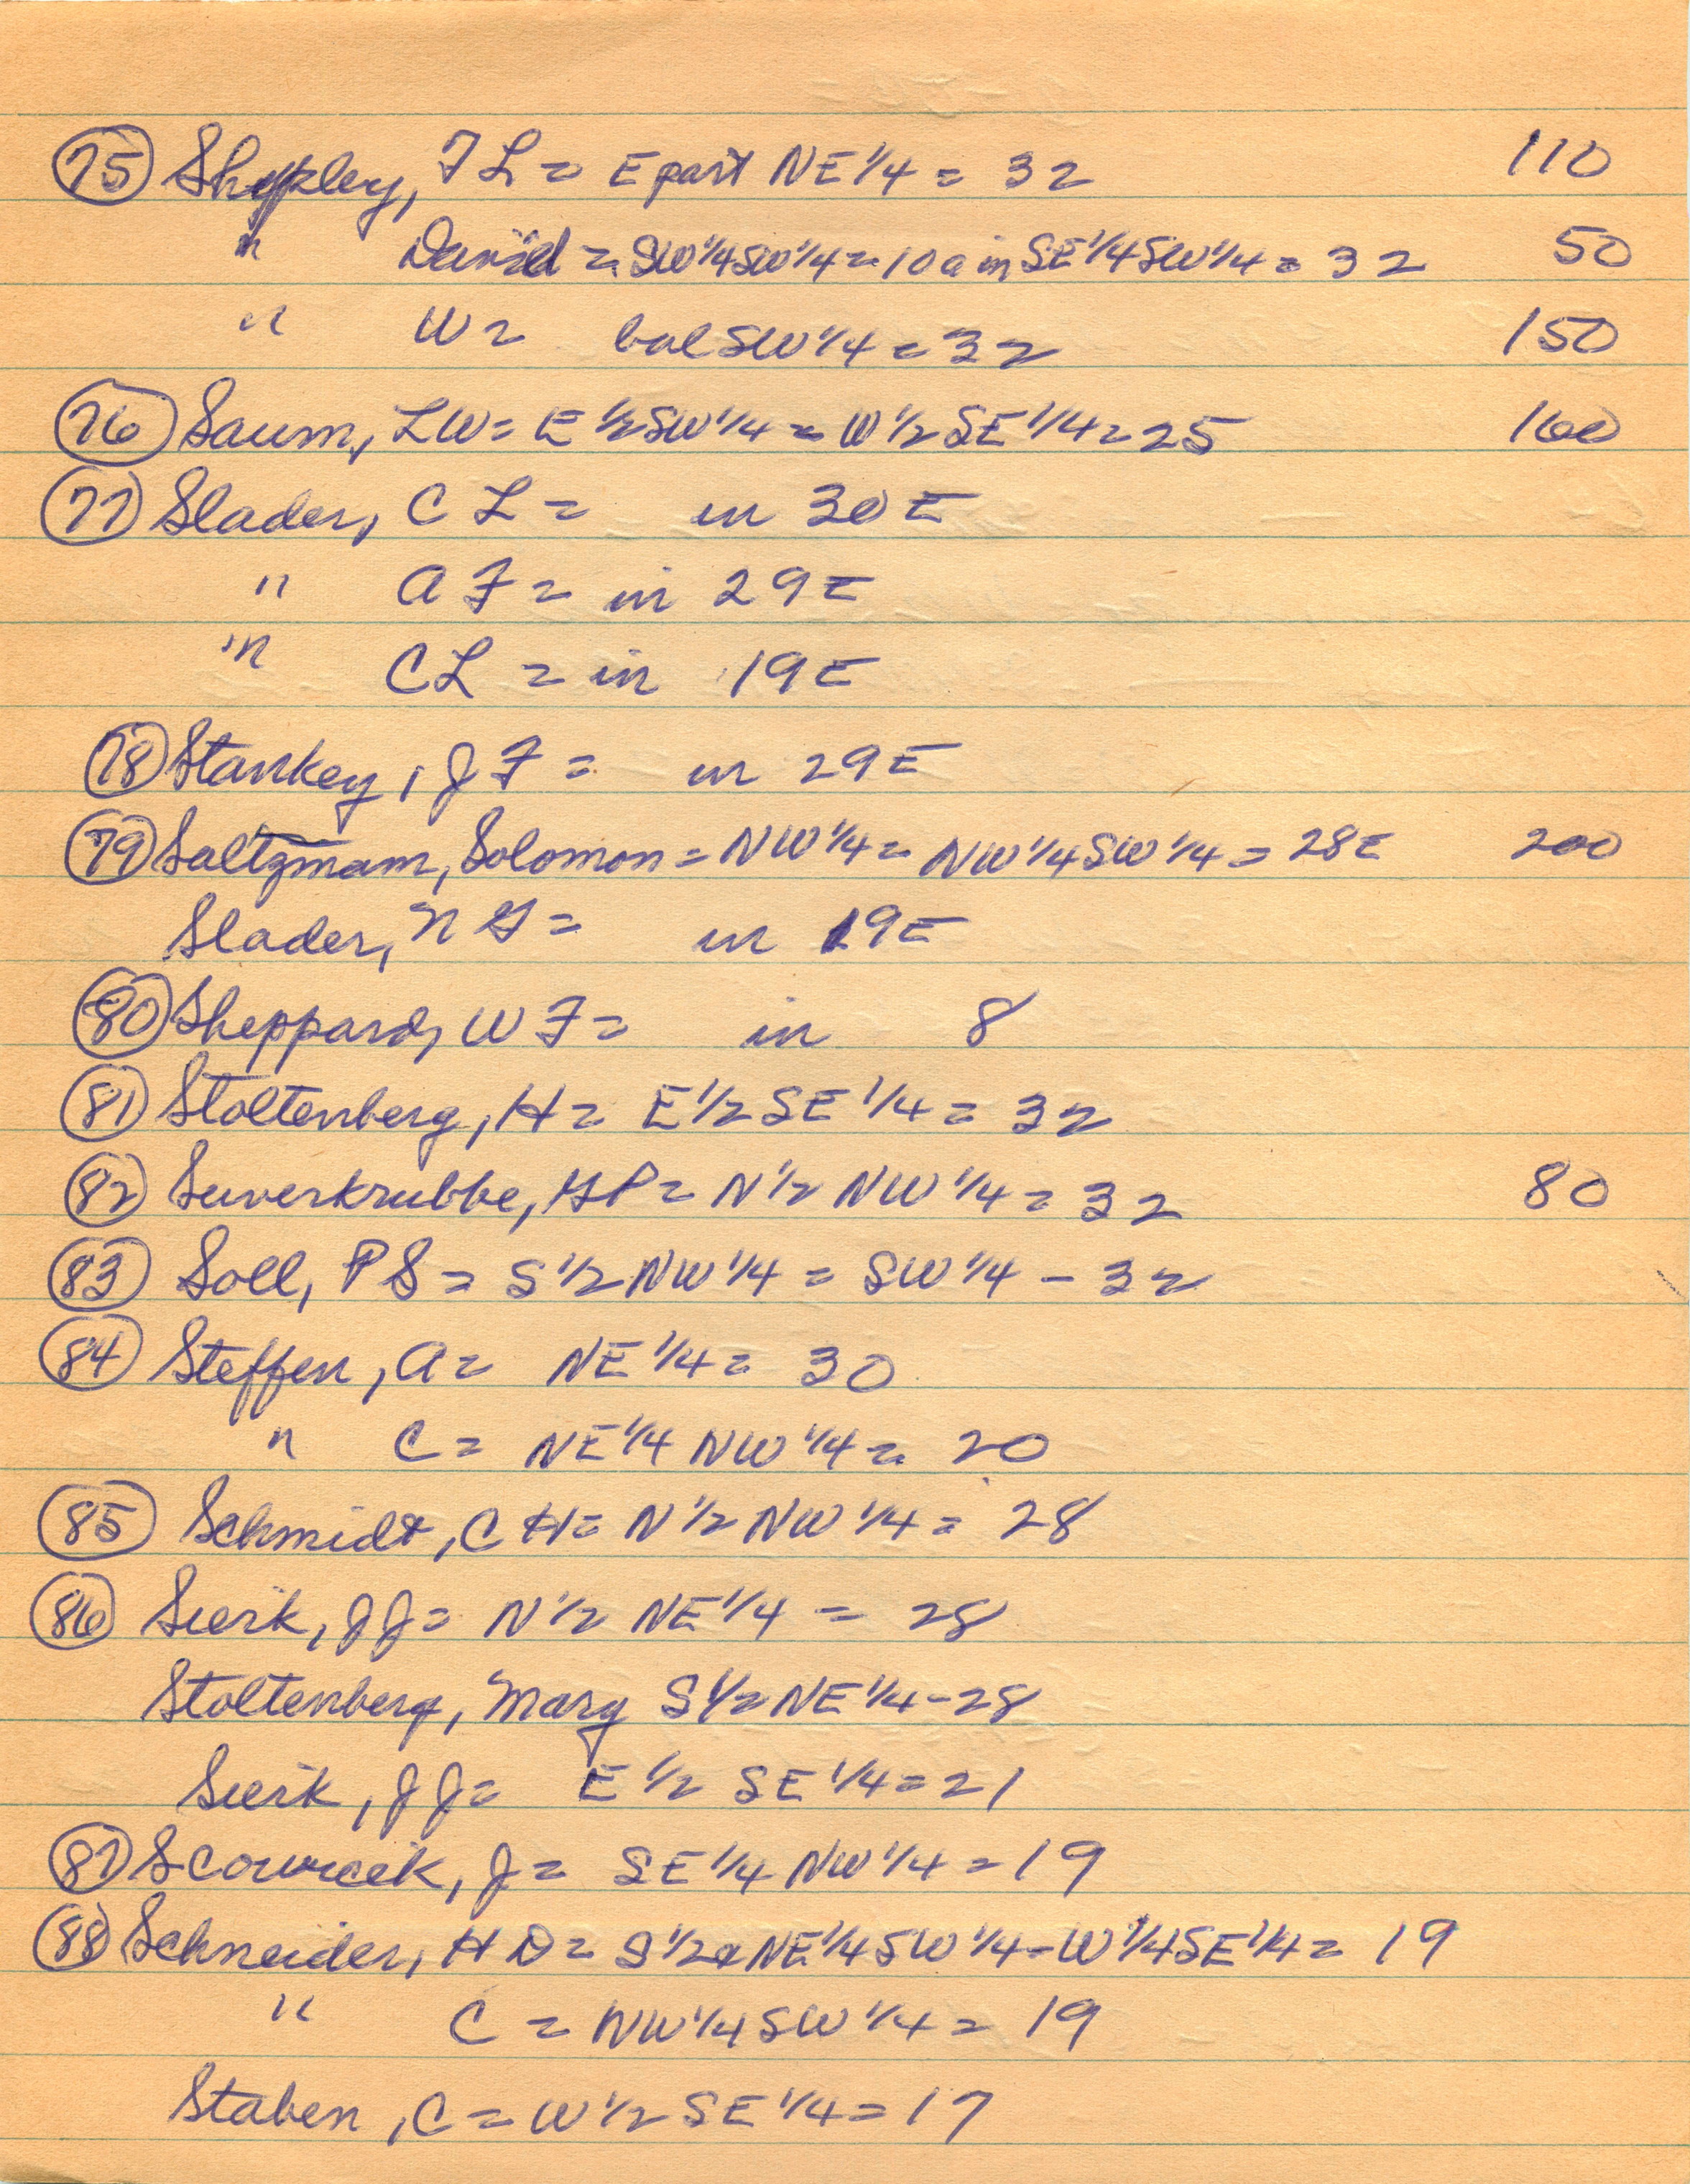 75 Shepley, F L = E part NE 1/4 = 32 110
" David = SW 1/4 SW 1/4 = 10 a in SE 1/4 SW 1/4 = 32 50
" W = bal SW 1/4 = 32 150
76 Saum, L W = E 1/2 SW 1/4 = W 1/2 SE 1/4 = 25 160
77 Slader, C L = in 30 E
" A F = in 29 E
" C L = in 19 E
78 Stankey, J F = in 29 E
79 Saltzmam, Solomon = NW 1/4 = NW 1/4 SW 1/4 = 28 E 200
Slader, N G = in 19 E
80 Sheppard, W F = in 8
81 Stoltenberg, H = E 1/2 SE 1/4 = 32
82 Suverkrubbe, G P = N 1/2 NW 1/4 = 32 80
83 Soll, P S = S 1/2 NW 1/4 = SW 1/4 - 32
84 Steffen, A = NE 1/4 = 30
" C = NE 1/4 NW 1/4 = 20
85 Schmidt, C H = N 1/2 NW 1/4 = 28
86 Sierk, J J = N 1/2 NE 1/4 = 28
Stoltenberg, Marg S 1/2 NE 1/4 - 28
Sierk, J J = E 1/2 SE 1/4 = 21
87 J = SE 1/4 NW 1/4 = 19
88 Schneider, H D = S 1/2 & NE 1/4 SW 1/4 - W 1/4 SE 1/4 = 19
" C = NW 1/4 SW 1/4 = 19
Staben, C = W 1/2 SE 1/4 = 17